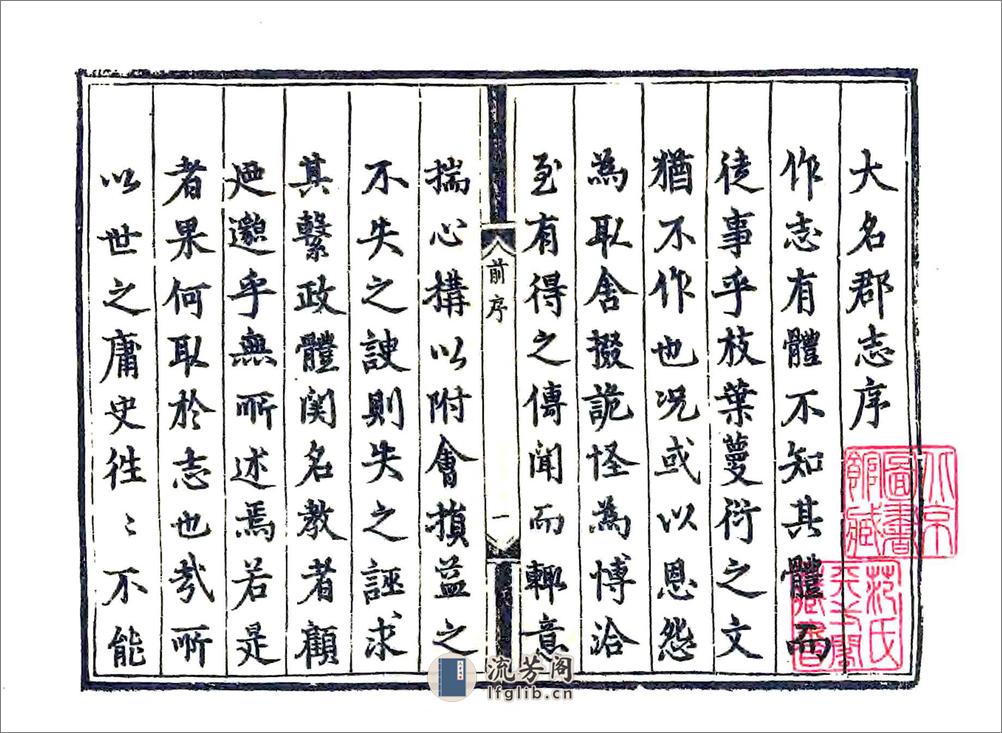 大名郡志序
作志有體不知其體而
徒事乎枝葉蔓衍之文
猶不作也况或以恩怨
為取舍掇詭怪為博洽
至有得之傳聞而輙意
前序
一
揣心搆以附會損益之
不失之諛則失之誣求
其繫政體関名教者顧
迺邈乎無所述焉若是
者果何取於志也㢤所
以世之庸史徃〻不能
北京圖書館藏
范氏天一閣藏書
流芳阁
lfglib.cn